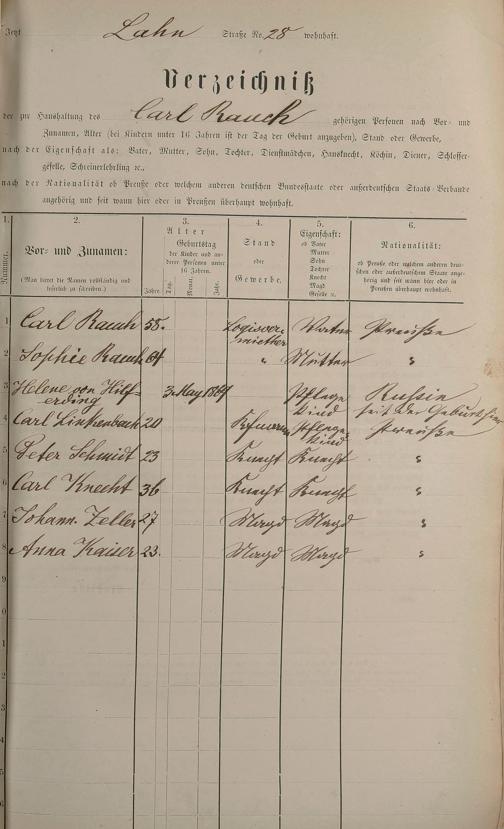 Jetzt Lahn Straße No. 28 wohnhaft.
Verzeichniß
der zur Haushaltung des Carl Rauch gehörigen Personen nach Vor- und
Zunamen, Alter (bei Kindern unter 16 Jahren ist der Tag der Geburt anzugeben), Stand oder Gewerbe,
nach der Eigenschaft als: Vater, Mutter, Sohn, Tochter, Dienstmädchen, Hausknecht, Köchin, Diener, Schlosser-
geselle, Schreinerlehrling ꝛc.,
nach der Nationalität ob Preuße oder welchem anderen deutschen Bundesstaate oder außerdeutschen Staats-Verbande
angehörig und seit wann hier oder in Preußen überhaupt wohnhaft.
1. 2. 3. 4. 5. 6.
Nummer.
Vor- und Zunamen:
(Man bittet die Namen vollständig und
leserlich zu schreiben.)
Alter
Jahre.
Geburtstag
der Kinder und an-
derer Personen unter
16 Jahren.
Tag. Monat. Jahr.
Stand
oder
Gewerbe.
Eigenschaft:
ob Vater
Mutter
Sohn
Tochter
Knecht
Magd
Geselle ꝛc.
Nationalität:
ob Preuße oder welchem anderen deut-
schen oder außerdeutschen Staate ange-
hörig und seit wann hier oder in
Preußen überhaupt wohnhaft.
1 Carl Rauch 55. Logisver-
miether Vater Preuße
2 Sophie Rauch 64 " Mutter "
3 Helene von Hilf-
erding 3. May 1869 Pflege
kind Russin
seit der Geburt hier
4 Carl Linkenbach 20 Kfmann Pflege
kind Preuße
5 Peter Schmidt 23 Knecht Knecht "
6 Carl Knecht 36 Knecht Knecht "
7 Johann. Zeller 27 Magd Magd "
8 Anna Kaiser 23. Magd Magd "
9
0
1
2
3
4
5
6